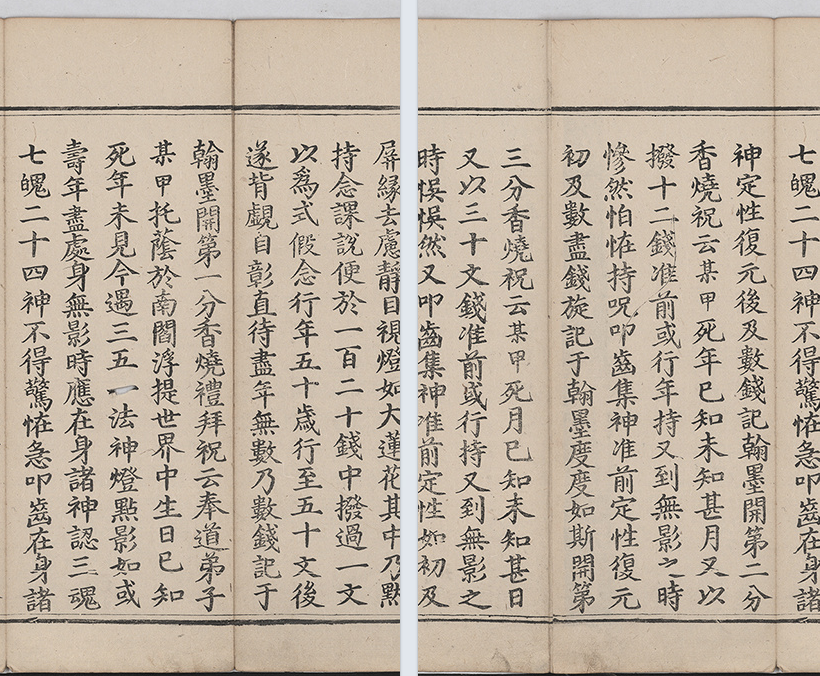 屏縁去慮靜目視燈如大蓮花其中乃黙
持念課說便於一百二十錢中撥過一文
以爲式假念行年五十歲行至五十文後
遂背覷自彰直待盡年無數乃數錢記于
翰墨開第一分香燒禮拜祝云奉道弟子
某甲托蔭於南閻浮提世界中生日已知
死年未見今遇三五一法神燈點影如或
壽年盡處身無影時應在身諸神認三魂
七魄二十四神不得驚恠急叩齒在身諸
七魄二十四神不得驚恠急叩齒在身諸
神定性復元後及數錢記翰墨開第二分
香燒祝云某甲死年已知未知甚月又以
撥十二錢准前或行年持又到無影之時
慘然怕恠持呪叩齒集神准前定性復元
初及數盡錢旋記于翰墨度度如斯開第
三分香燒祝云某甲死月已知未知甚日
又以三十文錢准前或行持又到無影之
時悮悮然又叩齒集神准前定性如初及